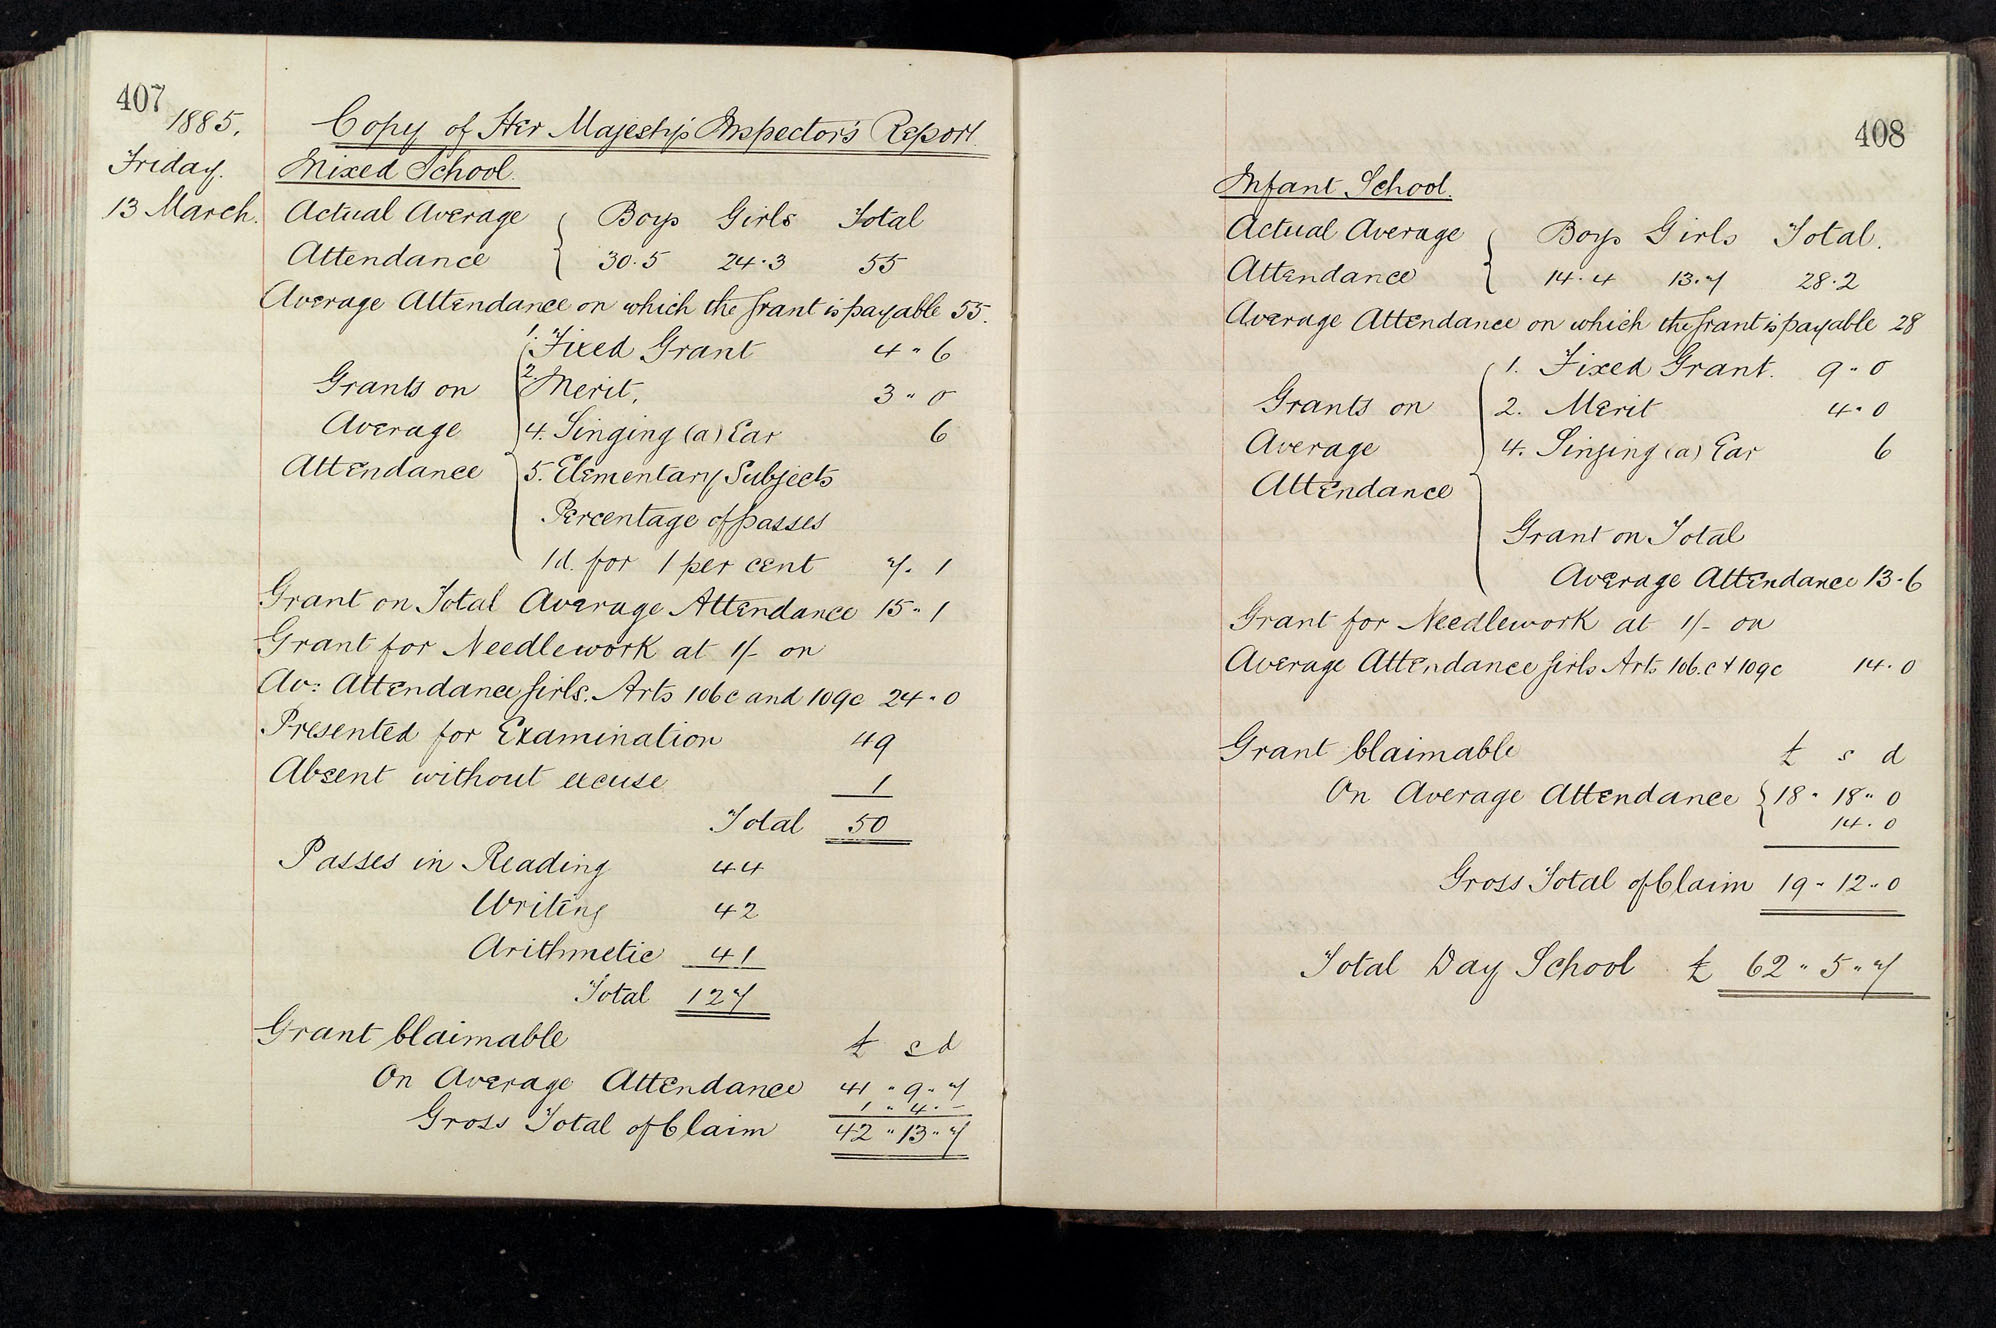 407
1885.
Friday.
13 March.
Copy of Her Majesty's Inspector's Report.
Mixed School.
Actual Average Boys Girls Total
Attendance 30.5 24.3 55
Average Attendance on which the grant is payable 55.
1. Fixed Grant 4 " 6
Grants on 2. Merit. 3 " 0
Average 4. Singing (a) Ear 6
Attendance 5. Elementary Subjects
Percentage of passes
1d. for 1 per cent 7. 1
Grant on Total Average Attendance 15 " 1
Grant for Needlework at 1/- on
Av: Attendance girls. Arts 106c and 109c 24 " 0
Presented for Examination 49
Absent without excuse 1
Total 50
Passes in Reading 44
Writing 42
Arithmetic 41
Total 127
Grant Claimable £ s d
On Average Attendance 41 " 9 " 7
1 " 4. -
Gross Total of Claim 42 " 13 " 7
408
Infant School.
Actual Average Boys Girls Total.
Attendance 14.4 13.7 28.2
Average Attendance on which the grant is payable 28
1. Fixed Grant. 9 " 0
Grants on 2. Merit 4 " 0
Average 4. Singing (a) Ear 6
Attendance
Grant on Total
Average Attendance 13 " 6
Grant for Needlework at 1/- on
Average Attendance girls Arts 106.c & 109c 14. 0
Grant Claimable £ s d
On Average Attendance 18 " 18 " 0
14. 0
Gross Total of Claim 19 " 12 " 0
Total Day School £ 62 " 5 " 7